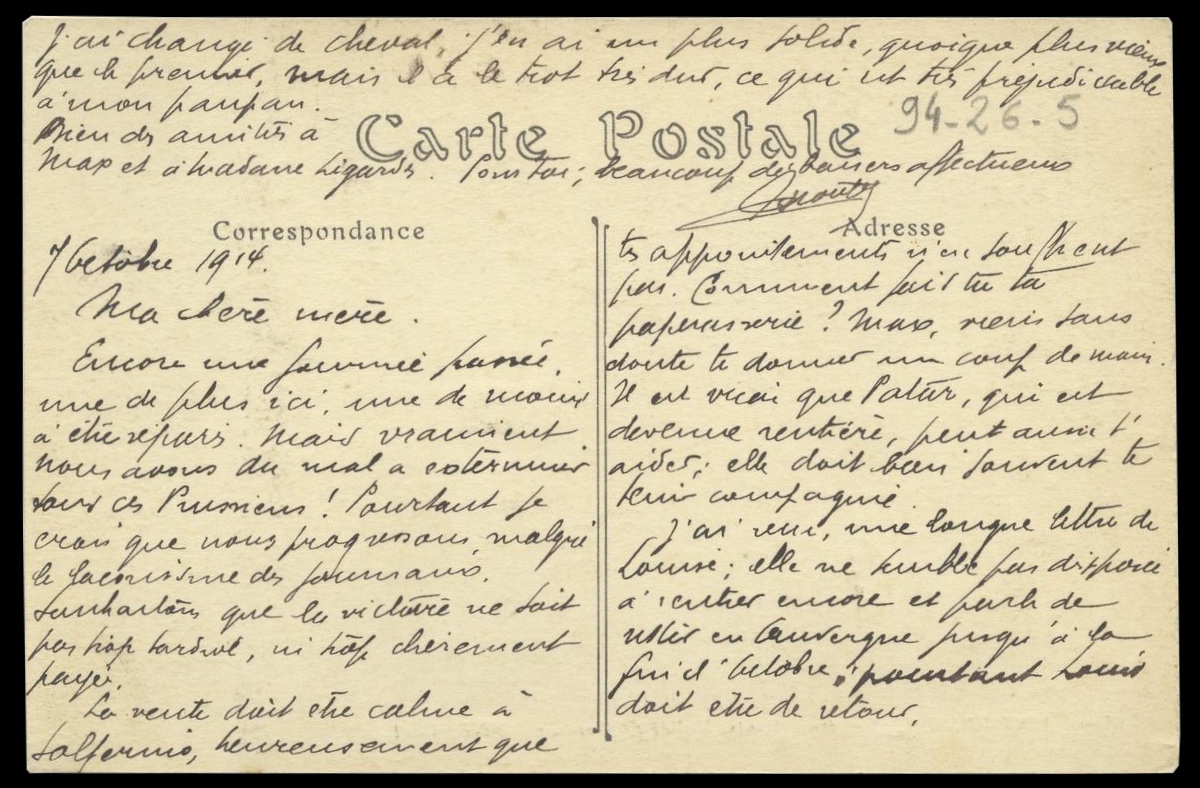 J'ai changé de cheval, j'en ai un plus solide, quoique plus vieux
que le premier, mais il a le trot très dur, ce qui est très préjudiciable
à mon panpan.
Bien des amitiés à
Max et à Madame Ligardès. Pour toi, beaucoup de baisers affectueux
Carte Postale
94-26-5
Correspondance
7 Octobre 1914.
Ma chère mère.
Encore une journée passée,
une de plus ici, une de moins
à être séparés. Mais vraiment
nous avons du mal a exterminer
tous ces Prussiens ! Pourtant je
crois que nous progressons, malgré
le laconisme des journaux.
Souhaitons que la victoire ne soit
pas trop tardive, ni trop chèrement
payée.
La vente doit être calme à
Solférino, heureusement que
Adresse
tes appointements n'en souffrent
pas. Comment fais tu ta
paperasserie ? Max, viens sans
doute te donner un coup de main.
Il est vrai que Patur, qui est
devenue rentière, peut aussi t'
aider ; elle doit bien souvent te
tenir compagnie.
J'ai reçu, une longue lettre de
Louise ; elle ne semble pas disposée
à rentrer encore et parle de
rester en Auvergne jusqu'à la
fin d'Octobre, pourtant Louis
doit être de retour.